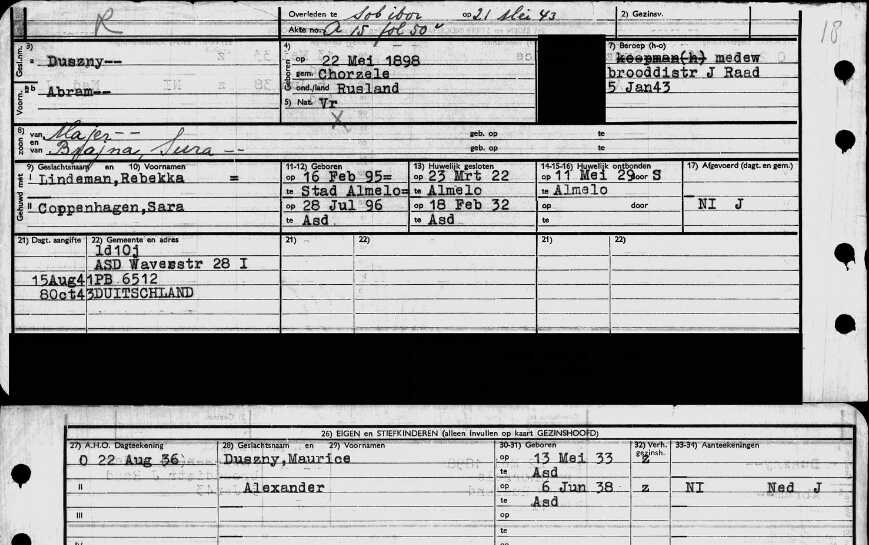 R
Overleden te Sobibor op 21 Mei 43
Akte no. A 15 fol 50v
2) Gezinsv.
18
Gesl.nm. 3)
a Duszny--
Voorn. b b Abram--
4)
Geboren op 22 Mei 1898
gem. Chorzele
ond./land Rusland
5) Nat. Vr
X
7) Beroep (h-o)
koopman(h) medew
brooddistr J Raad
5 Jan43
8) zoon van Majer -- geb. op te
en van Brajna, Sura -- geb. op te
Gehuwd met
9) Geslachtsnaam en 10) Voornamen
I Lindeman,Rebekka =
II Coppenhagen,Sara
11-12) Geboren
op 16 Feb 95=
te Stad Almelo=
op 28 Jul 96
te Asd
13) Huwelijk gesloten
op 23 Mrt 22
te Almelo
op 18 Feb 32
te Asd
14-15-16) Huwelijk ontbonden
op 11 Mei 29 door S
te Almelo
op door
te
17) Afgevoerd (dagt. en gem.)
NI J
21) Dagt. aangifte 22) Gemeente en adres 21) 22) 21) 22)
ld10j
ASD Waverstr 28 I
15Aug41 PB 6512
8Oct43 DUITSCHLAND
26) EIGEN en STIEFKINDEREN (alleen invullen op kaart GEZINSHOOFD)
27) A.H.O. Dagteekening 28) Geslachtsnaam en 29) Voornamen 30-31) Geboren 32) Verh. gezinsh. 33-34) Aanteekeningen
O 22 Aug 36 Duszny,Maurice op 13 Mei 33 z
te Asd
II Alexander op 6 Jun 38 z NI Ned J
te Asd
III op
te
IV op